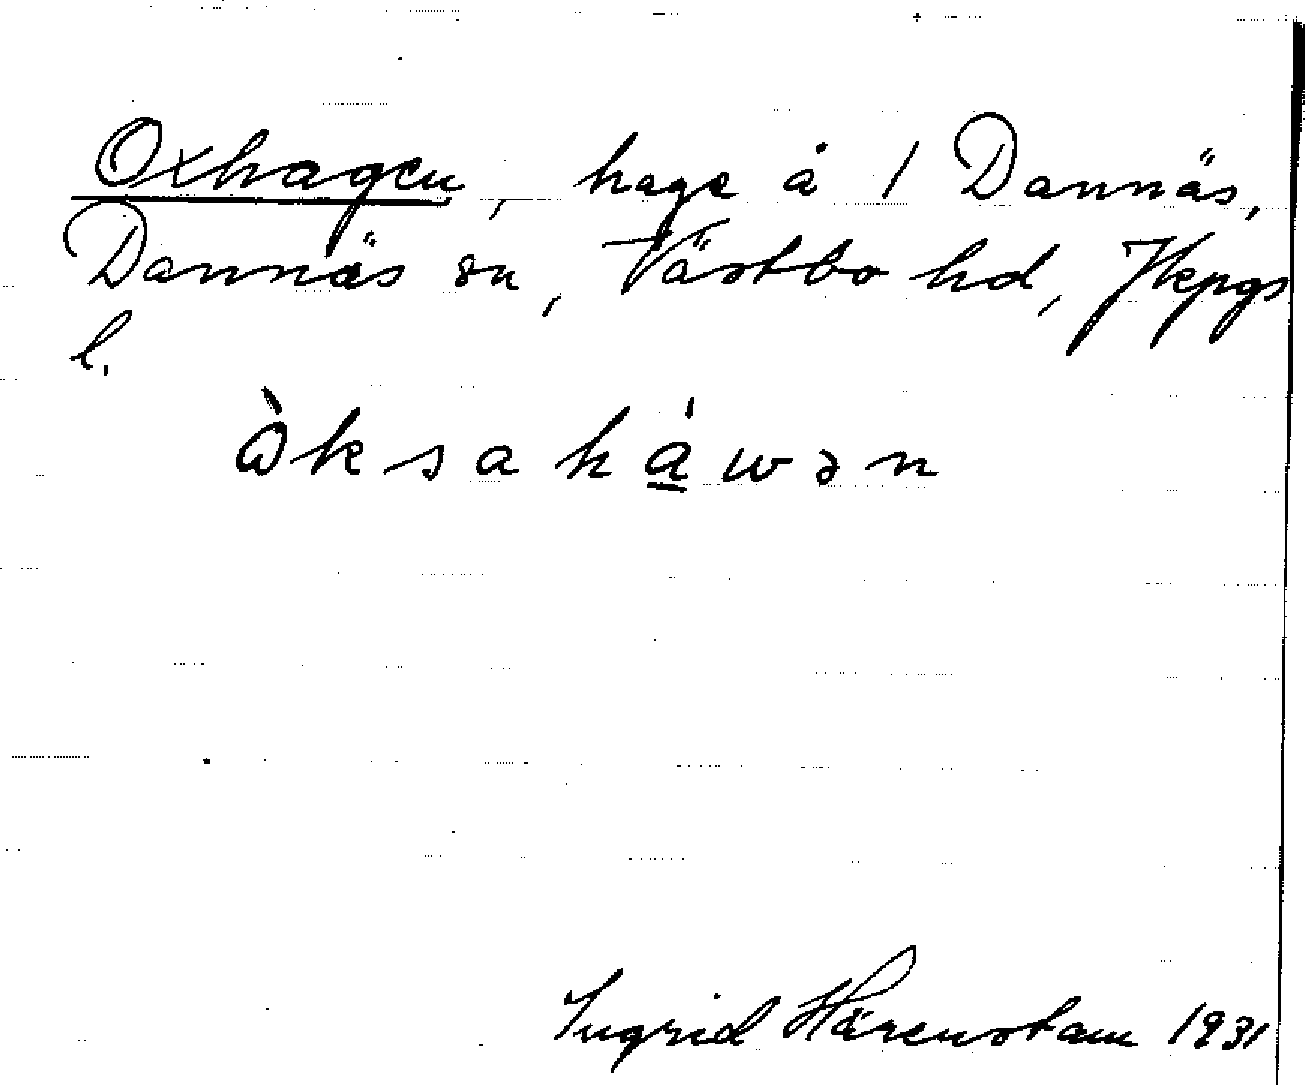 Oxhagen, hage å 1 Dannäs,
Dannäs sn, Västbo hd, Jkpgs
l.
òksaháwən
Ingrid Härenstam 1931